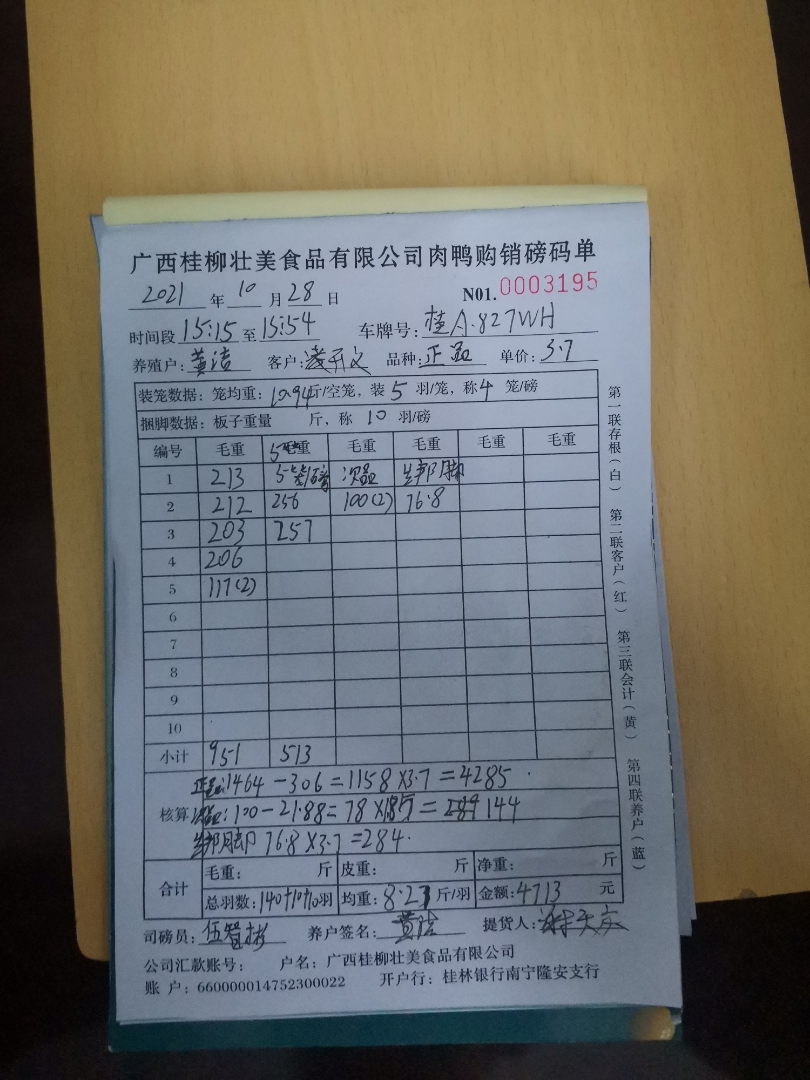 广西桂柳壮美食品有限公司肉鸭购销磅码单
2021 年 10 月 28 日 N01. 0003195
时间段 15:15 至 15:54 车牌号: 桂A·827WH
养殖户: 黄洁 客户: 品种: 正品 单价: 3.7
装笼数据: 笼均重: 10.94 斤/空笼, 装 5 羽/笼, 称 4 笼/磅
捆脚数据: 板子重量 斤, 称 10 羽/磅
编号 毛重 5 毛重 毛重 毛重 毛重 毛重
1 213 5 /磅 次品 绑脚
2 212 256 100(2) 76.8
3 203 257
4 206
5 117(2)
6
7
8
9
10
小计 951 513
正品: 1464 - 306 = 1158 ×3.7 = 4285
核算 次品: 100 - 21.88 = 78 × = 144
绑脚 76.8 ×3.7 = 284.
合计 毛重: 斤 皮重: 斤 净重: 斤
总羽数: 140+10+10 羽 均重: 8.27 斤/羽 金额: 4713 元
司磅员: 伍智彬 养户签名: 黄洁 提货人:
公司汇款账号: 户名: 广西桂柳壮美食品有限公司
账 户: 660000014752300022 开户行: 桂林银行南宁隆安支行
第一联存根(白) 第二联客户(红) 第三联会计(黄) 第四联养户(蓝)